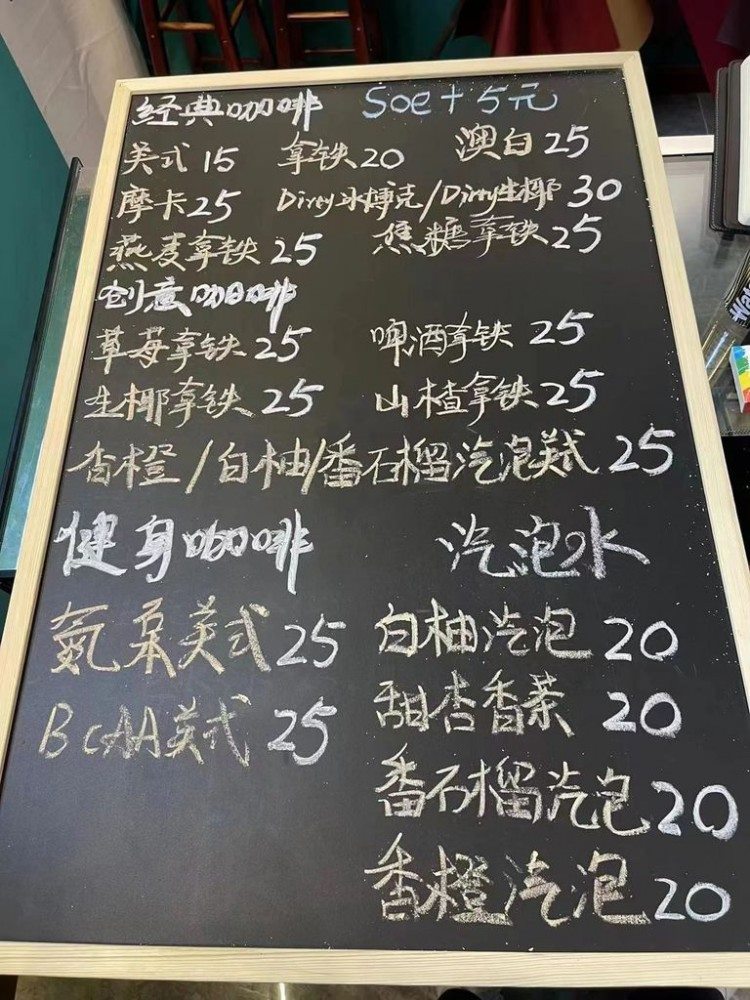 经典咖啡 Soe+5元
美式 15 拿铁 20 澳白 25
摩卡 25 Dirty冰博克/Dirty生椰 30
燕麦拿铁 25 焦糖拿铁 25
创意咖啡
草莓拿铁 25 啤酒拿铁 25
生椰拿铁 25 山楂拿铁 25
香橙/白柚/番石榴汽泡美式 25
健身咖啡 汽泡水
氮泵美式 25 白柚汽泡 20
BCAA美式 25 甜杏香茉 20
番石榴汽泡 20
香橙汽泡 20